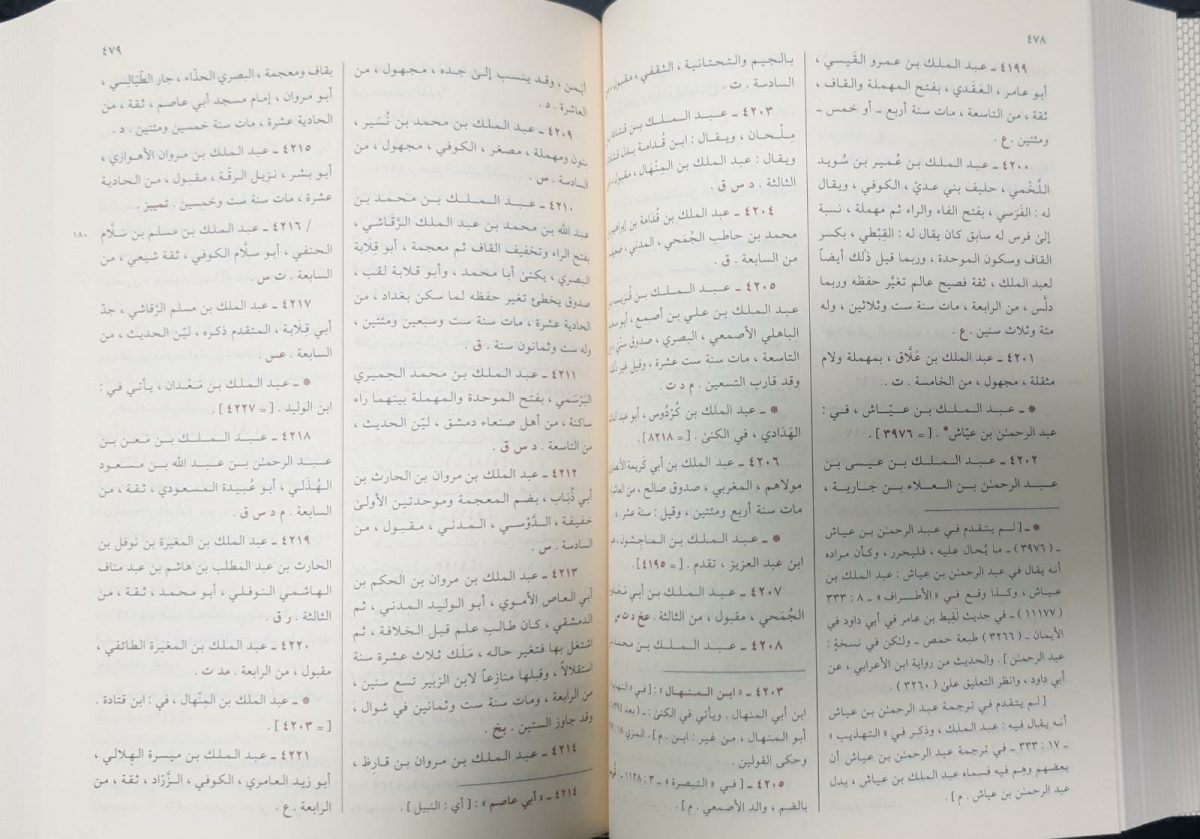 ٤٧٨
٤١٩٩ ـ عبد الملك بن عمرو القَيسي ،
أبو عامر ، العَقَدي ، بفتح المهملة والقاف ،
ثقة ، من التاسعة ، مات سنة أربع ـ أو خمس ـ
ومئتين . ع .
٤٢٠٠ ـ عبد الملك بن عُمير بن سُويد
اللَّخْمي ، حليف بني عديّ ، الكوفي ، ويقال
له : الفَرَسي ، بفتح الفاء والراء ثم مهملة ، نسبة
إلىٰ فرس له سابق كان يقال له : القِبْطي ، بكسر
القاف وسكون الموحدة ، وربما قيل ذلك أيضاً
لعبد الملك ، ثقة فصيح عالم تغيَّر حفظه وربما
دلَّس ، من الرابعة ، مات سنة ست وثلاثين ، وله
مئة وثلاث سنين . ع .
٤٢٠١ ـ عبد الملك بن عَلَّاق ، بمهملة ولام
مثقلة ، مجهول ، من الخامسة . ت .
* ـ عبد الملك بن عيّاش ، في :
عبد الرحمٰن بن عيّاش* . [ = ٣٩٧٦ ] .
٤٢٠٢ ـ عبد الملك بن عيسى بن
عبد الرحمٰن بن العلاء بن جارية ،
* ـ [ لم يتقدم في عبد الرحمٰن بن عياش
ـ ( ٣٩٧٦ ) ـ ما يُحال عليه ، فليحرر ، وكأن مراده
أنه يقال في عبد الرحمٰن بن عياش : عبد الملك بن
عياش ، وكذا وقع في « الأطراف » ـ ٨ : ٣٣٣
( ١١١٧٧ ) ـ في حديث لَقيط بن عامر في أبي داود في
الأيمان ـ ( ٣٢٦٦ ) طبعة حمص ـ ولكن في نسخةٍ :
عبد الرحمٰن ] . والحديث من رواية ابن الأعرابي ، عن
أبي داود ، وانظر التعليق علىٰ ( ٣٢٦٠ ) .
[ لم يتقدم في ترجمة عبد الرحمٰن بن عياش
أنه يقال فيه : عبد الملك ، وذكر في « التهذيب »
ـ ١٧ : ٣٣٣ ـ في ترجمة عبد الرحمٰن بن عياش أن
بعضهم وهِم فيه فسماه عبد الملك بن عياش ، بدل
عبد الرحمٰن بن عياش . م ] .
بالجيم والتحتانية ، الثقفي ، مقبول ، من
السادسة . ت .
٤٢٠٣ ـ عبد الملك بن قتادة بن
مِلْحان ، ويقال : ابن قدامة بدل قتادة
ويقال : عبد الملك بن المِنْهال ، مقبول ، من
الثالثة . د س ق .
٤٢٠٤ ـ عبد الملك بن قُدَامة بن إبراهيم بن
محمد بن حاطب الجُمَحي ، المدني ، ضعيف
من السابعة . ق .
٤٢٠٥ ـ عبد الملك بن قُرَيب بن
عبد الملك بن علي بن أصمع ، أبو سعيد
الباهلي الأصمعي ، البصري ، صدوق سُنِّي من
التاسعة ، مات سنة ست عشرة ، وقيل غير ذلك
وقد قارب التسعين . م د ت .
* ـ عبد الملك بن كُرْدُوس ، أبو عبد الدائم
الهَدَادي ، في الكنىٰ . [ = ٨٢١٨ ] .
٤٢٠٦ ـ عبد الملك بن أبي كريمة الأنصاري
مولاهم ، المغربي ، صدوق صالح ، من العاشرة
مات سنة أربع ومئتين ، وقيل : سنة عشر . د .
* ـ عبد الملك بن الماجِشون ،
ابن عبد العزيز ، تقدم . [ = ٤١٩٥ ] .
٤٢٠٧ ـ عبد الملك بن أبي
الجُمَحي ، مقبول ، من الثالثة . عخ د ت س
٤٢٠٨ ـ عبد الملك بن محمد
٤٢٠٣ ـ « ابن المنهال » : [ في « النهاية
ابن أبي المنهال . ويأتي في الكنىٰ : ـ ( بعد
أبو المنهال ، من غير : ابن . م ] . المزي ١٨ :
وحكى القولين
٤٢٠٥ ـ [ في « التبصرة » ـ ٣ : ١١٢٨ ـ
بالضم ، والد الأصمعي . م ] .
٤٧٩
أيمن ، وقد ينسب إلىٰ جده ، مجهول ، من
العاشرة . د .
٤٢٠٩ ـ عبد الملك بن محمد بن نُسَير ،
بنون ومهملة ، مصغر ، الكوفي ، مجهول ، من
السادسة . س .
٤٢١٠ ـ عبد الملك بن محمد بن
عبد الله بن محمد بن عبد الملك الرَّقَاشي ،
بفتح الراء وتخفيف القاف ثم معجمة ، أبو قلابة
البصري ، يكنىٰ أبا محمد ، وأبو قلابة لقب ،
صدوق يخطئ تغير حفظه لما سكن بغداد ، من
الحادية عشرة ، مات سنة ست وسبعين ومئتين ،
وله ست وثمانون سنة . ق .
٤٢١١ ـ عبد الملك بن محمد الحِميري
البَرْسَمي ، بفتح الموحدة والمهملة بينهما راء
ساكنة ، من أهل صنعاء دمشق ، ليّن الحديث ،
من التاسعة . د س ق .
٤٢١٢ ـ عبد الملك بن مروان بن الحارث بن
أبي ذُبَاب ، بضم المعجمة وموحدتين الأولىٰ
خفيفة ، الدَّوْسي ، المدني ، مقبول ، من
السادسة . س .
٤٢١٣ ـ عبد الملك بن مروان بن الحكم بن
أبي العاص الأموي ، أبو الوليد المدني ، ثم
الدمشقي ، كان طالب علم قبل الخلافة ، ثم
اشتغل بها فتغير حاله ، مَلَك ثلاث عشرة سنة
استقلالاً ، وقبلها منازعاً لابن الزبير تسع سنين ،
من الرابعة ، ومات سنة ست وثمانين في شوال ،
وقد جاوز الستين . بخ .
٤٢١٤ ـ عبد الملك بن مروان بن قارِظ ،
٤٢١٤ ـ « أبي عاصم » : [ أي : النبيل ] .
بقاف ومعجمة ، البصري الحذّاء ، جار الطّيالِسي ،
أبو مروان ، إمام مسجد أبي عاصم ، ثقة ، من
الحادية عشرة ، مات سنة خمسين ومئتين . د .
٤٢١٥ ـ عبد الملك بن مروان الأهوازي ،
أبو بشر ، نزيل الرقّة ، مقبول ، من الحادية
عشرة ، مات سنة ست وخمسين . تمييز .
١٨٠ / ٤٢١٦ ـ عبد الملك بن مسلم بن سَلَّام
الحنفي ، أبو سلَّام الكوفي ، ثقة شيعي ، من
السابعة . ت س .
٤٢١٧ ـ عبد الملك بن مسلم الرَّقاشي ، جدّ
أبي قلابة ، المتقدم ذكره ، ليّن الحديث ، من
السابعة . عس .
* ـ عبد الملك بن مَعْدان ، يأتي في :
ابن الوليد . [ = ٤٢٢٧ ] .
٤٢١٨ ـ عبد الملك بن مَعن بن
عبد الرحمٰن بن عبد الله بن مسعود
الهُذَلي ، أبو عُبيدة المسعودي ، ثقة ، من
السابعة . م د س ق .
٤٢١٩ ـ عبد الملك بن المغيرة بن نوفل بن
الحارث بن عبد المطلب بن هاشم بن عبد مناف
الهاشمي النوفلي ، أبو محمد ، ثقة ، من
الثالثة . ر ق .
٤٢٢٠ ـ عبد الملك بن المغيرة الطائفي ،
مقبول ، من الرابعة . مد ت .
* ـ عبد الملك بن المِنْهال ، في : ابن قتادة .
[ = ٤٢٠٣ ] .
٤٢٢١ ـ عبد الملك بن ميسرة الهلالي ،
أبو زيد العامري ، الكوفي ، الزَّرّاد ، ثقة ، من
الرابعة . ع .